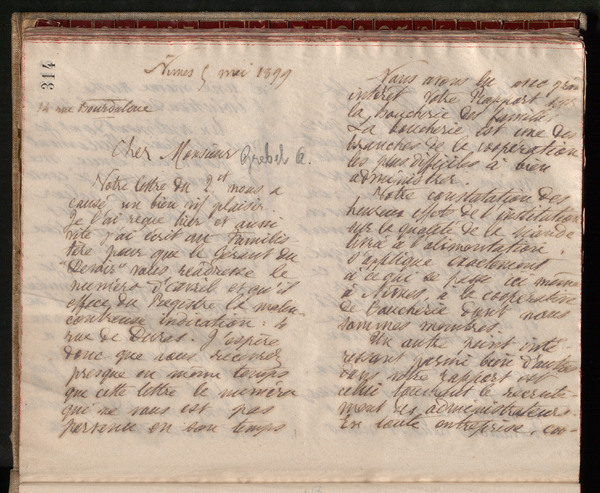 314
Nimes 5 mai 1899
14 rue Bourdaloue
Cher Monsieur Grebel A.
Votre lettre du 2 et nous a
causé un bien vif plaisir.
Je l'ai reçue hier et aussi
vite j'ai écrit au Familis
tère pour que le Gérant du
"Devoir" vous réadresse le
numéro d'avril et qu'il
efface du Registre la malen
contreuse indication : 4
rue de Dunes. J'espère
donc que vous recevrez
presque en même temps
que cette lettre le numéro
qui ne vous est pas
parvenu en son temps.
Nous avons lu avec grand
intérêt votre Rapport sur
la boucherie des familles
La boucherie est une des
branches de la coopération
les plus difficiles à bien
administrer.
Votre constatation des
heureux effets de l'institution
sur la qualité de la viande
livrée à l'alimentation
s'applique exactement
à ce qui se passe ici même
à Nimes, à la coopération
de boucherie dont nous
sommes membres.
Un autre point inté-
ressant parmi bien d'autres
dans votre rapport est
celui touchant le recrute-
ment des administrateurs.
En toute entreprise, coo-